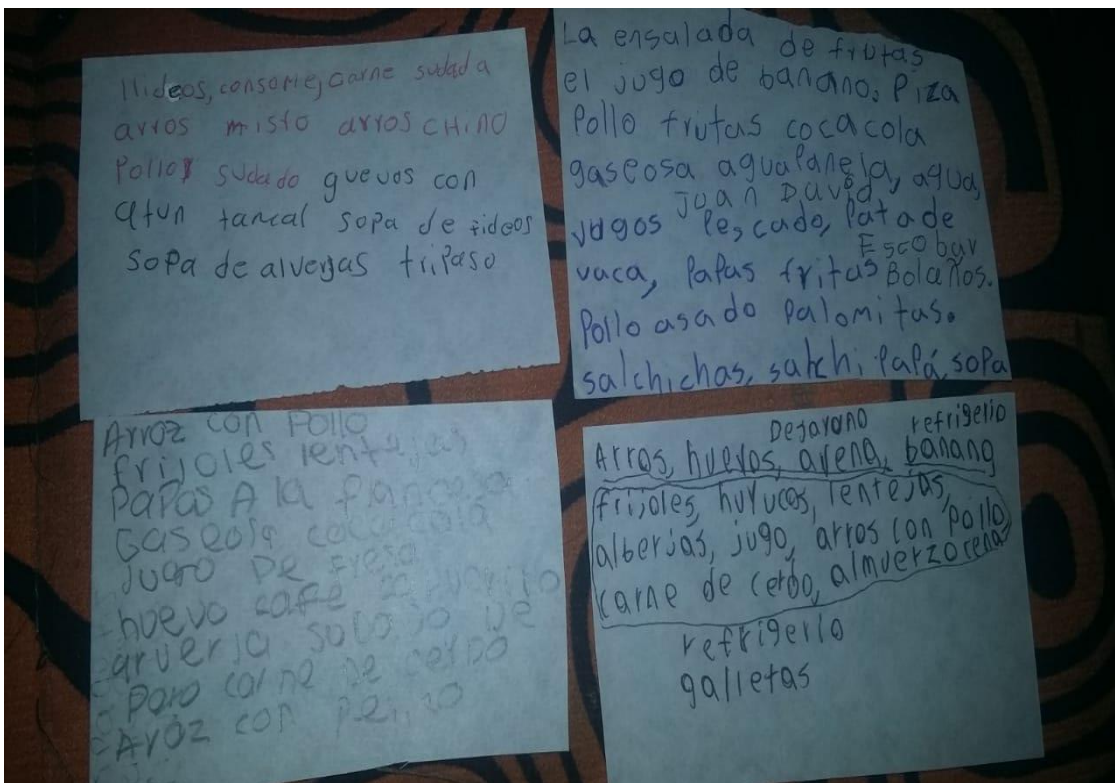 llideos, consome, carne sudada
arros misto arros CHiNO
Pollo sudado guevos con
atun tamal sopa de fideos
sopa de alverjas tripaso
La ensalada de frutas
el jugo de banano, Piza
Pollo frutas coca cola
gaseosa aguaPanela, agua,
Juan David
jugos Pescado, Pata de
Escobar
vaca, PaPas fritas Bolaños.
Pollo asado Palomitas.
salchichas, salchi PaPá, soPa
Arroz con Pollo
frijoles lentejas
PaPas A la
Gaseosa coca cola
JUGO De Fresa
huevo cafe
arverja
carne de cerdo
Aroz con
Desayuno refrigerio
Arros, huevos, avena, banano
frijoles, hulucos, lentejas,
alberjas, jugo, arros con pollo,
carne de cerdo, almuerzo cena
refrigerio
galletas